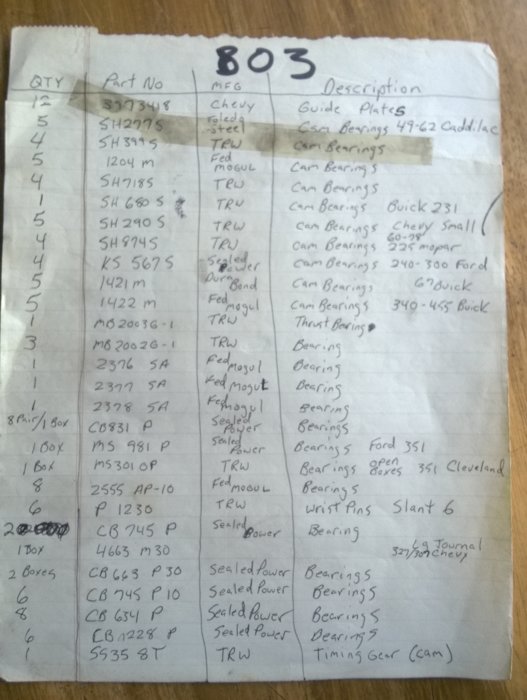 BO3
QTY Part No MFG Description
12 3973418 Chevy Guide Plates
5 SH277S Toledo Steel Cam Bearings 49-62 Caddilac
4 SH399S TRW Cam Bearings
5 1204 m Fed mogul Cam Bearings
4 SH718S TRW Cam Bearings
1 SH 680 S TRW Cam Bearings Buick 231
5 SH 290 S TRW Cam Bearings Chevy Small
4 SH 874S TRW Cam Bearings 60-78 225 mopar
4 KS 567 S Sealed Power Cam Bearings 240-300 Ford
5 1421 m Dura Bond Cam Bearings 67 Buick
5 1422 m Fed mogul Cam Bearings 340-455 Buick
1 MB2003G-1 TRW Thrust Bearing
3 MB2002G-1 TRW Bearing
1 2376 SA Fed mogul Bearing
1 2377 SA Fed Mogul Bearing
1 2378 SA Fed mogul Bearing
8 Pair/1 Box CB831 P Sealed Power Bearings
1 Box MS 981 P Sealed Power Bearings Ford 351
1 Box MS3010P TRW Bearings open Boxes 351 Cleveland
8 2555 AP-10 Fed moguL Bearings
6 P 1230 TRW Wrist Pins Slant 6
2 CB 745 P Sealed Power Bearing
1 Box 4663 m30 Lg Journal 327/307 Chevy
2 Boxes CB 663 P 30 Sealed Power Bearings
6 CB 745 P 10 Sealed Power Bearings
8 CB 634 P Sealed Power Bearings
6 CB 1228 P Sealed Power Bearings
1 SS35 8T TRW Timing Gear (cam)